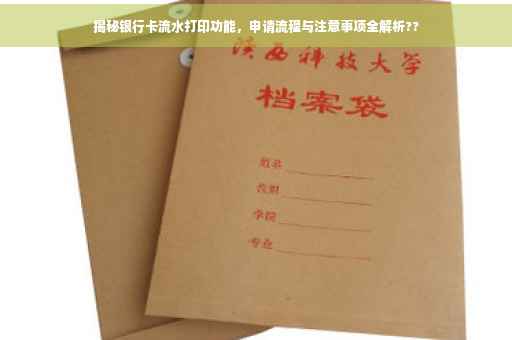 揭秘银行卡流水打印功能，申请流程与注意事项全解析??
陕西科技大学
档案袋
姓名
教职
学院
专业